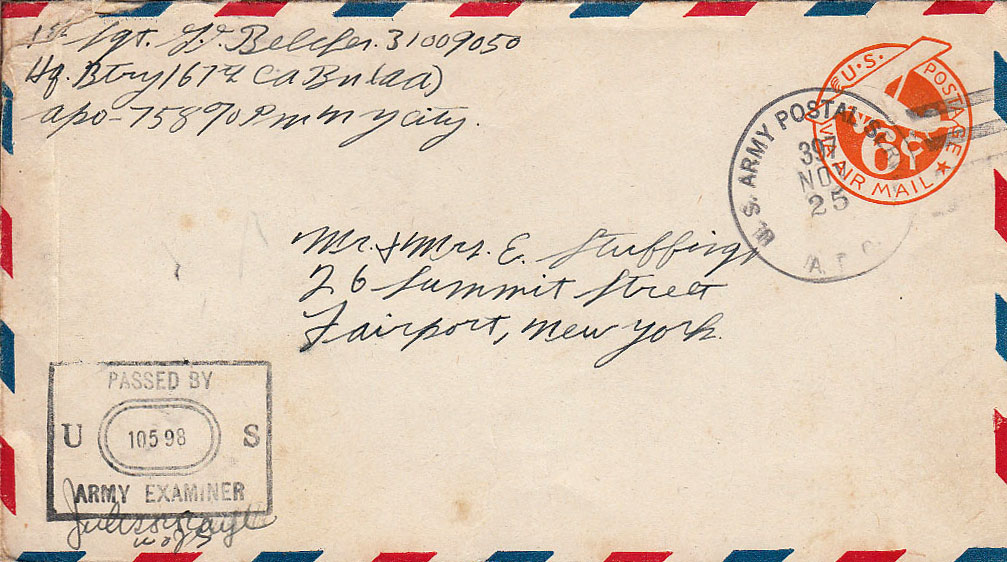 1st Sgt. L. V. Belcher. 31009050
Hq. Btry 167th CA Bn (aa)
apo-758 % Pm n y city.
U.S. POSTAGE
6¢
VIA AIR MAIL
U.S. ARMY POSTAL
397
NOV
25
A.P.O.
Mr. & Mrs. E. Stuffings
26 Summit Street
Fairport, New York.
PASSED BY
U 10598 S
ARMY EXAMINER